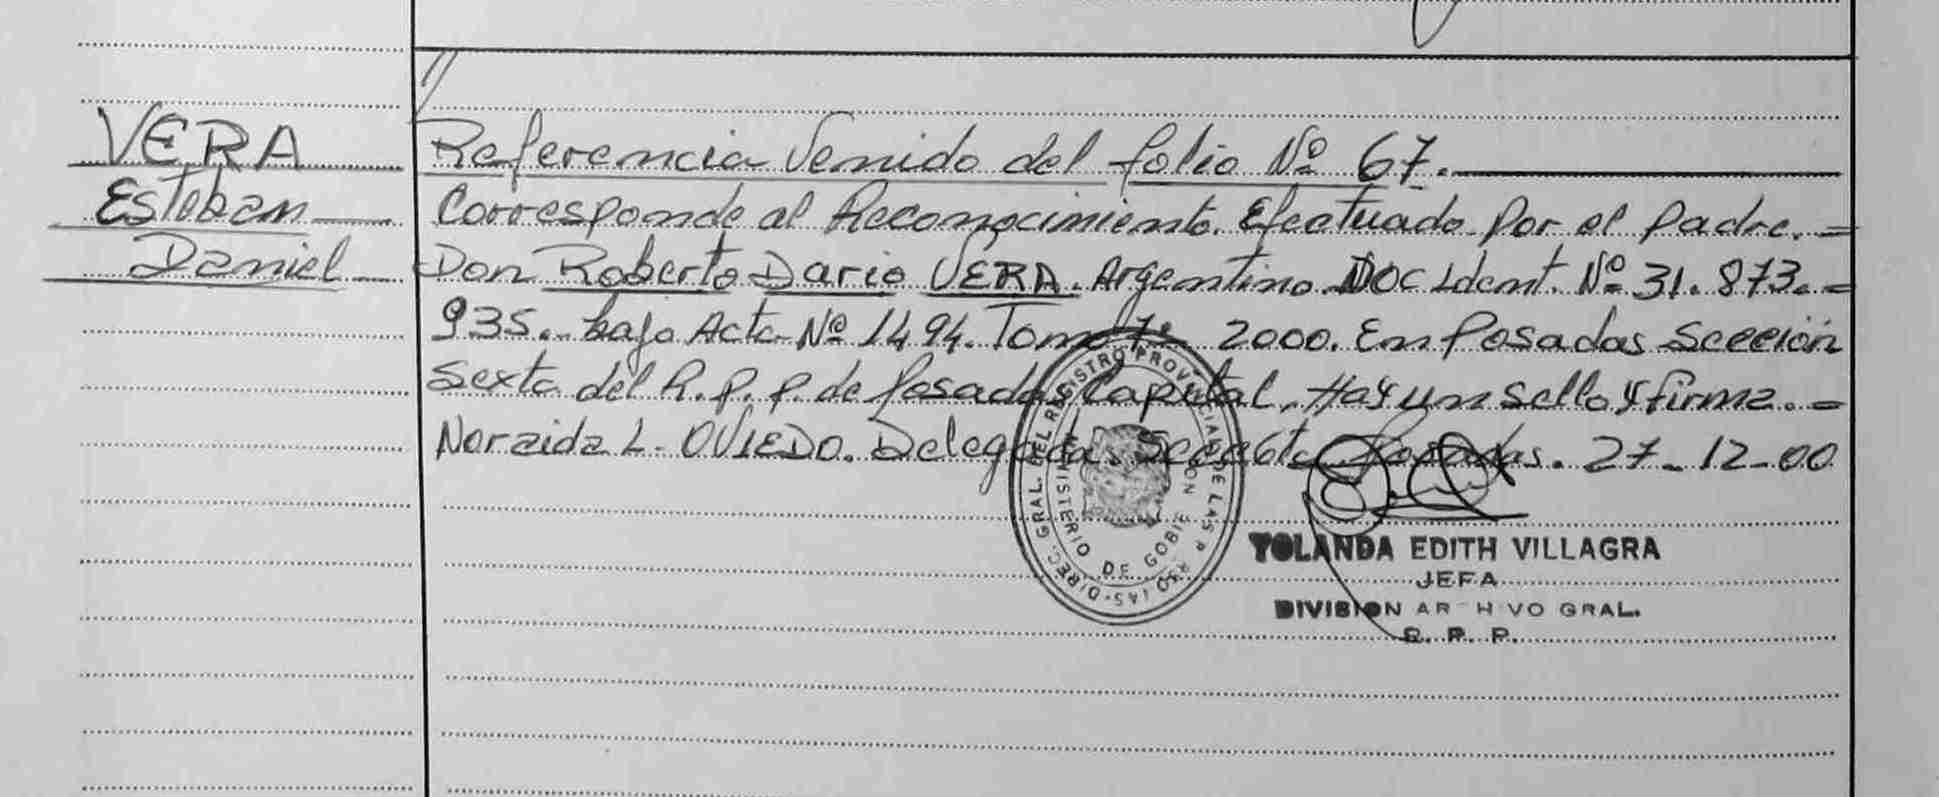 VERA
Esteban
Daniel
Referencia Venido del folio Nº 67.
Corresponde al Reconocimiento. Efectuado por el padre. =
Don Roberto Dario VERA. Argentino DOC Ident. Nº 31.873.=
935.- bajo Acta Nº 1494. Tomo 2000. En Posadas Sección
Sexta del R.P.P. de Posadas Capital. Hay un sello y firma. =
Noraida L. OVIEDO. Delegada. Posadas. 27-12-00
DIREC. GRAL. DEL REGISTRO PROVINCIAL DE LAS
DE
YOLANDA EDITH VILLAGRA
JEFA
DIVISION AR HIVO GRAL.
R. P. P.